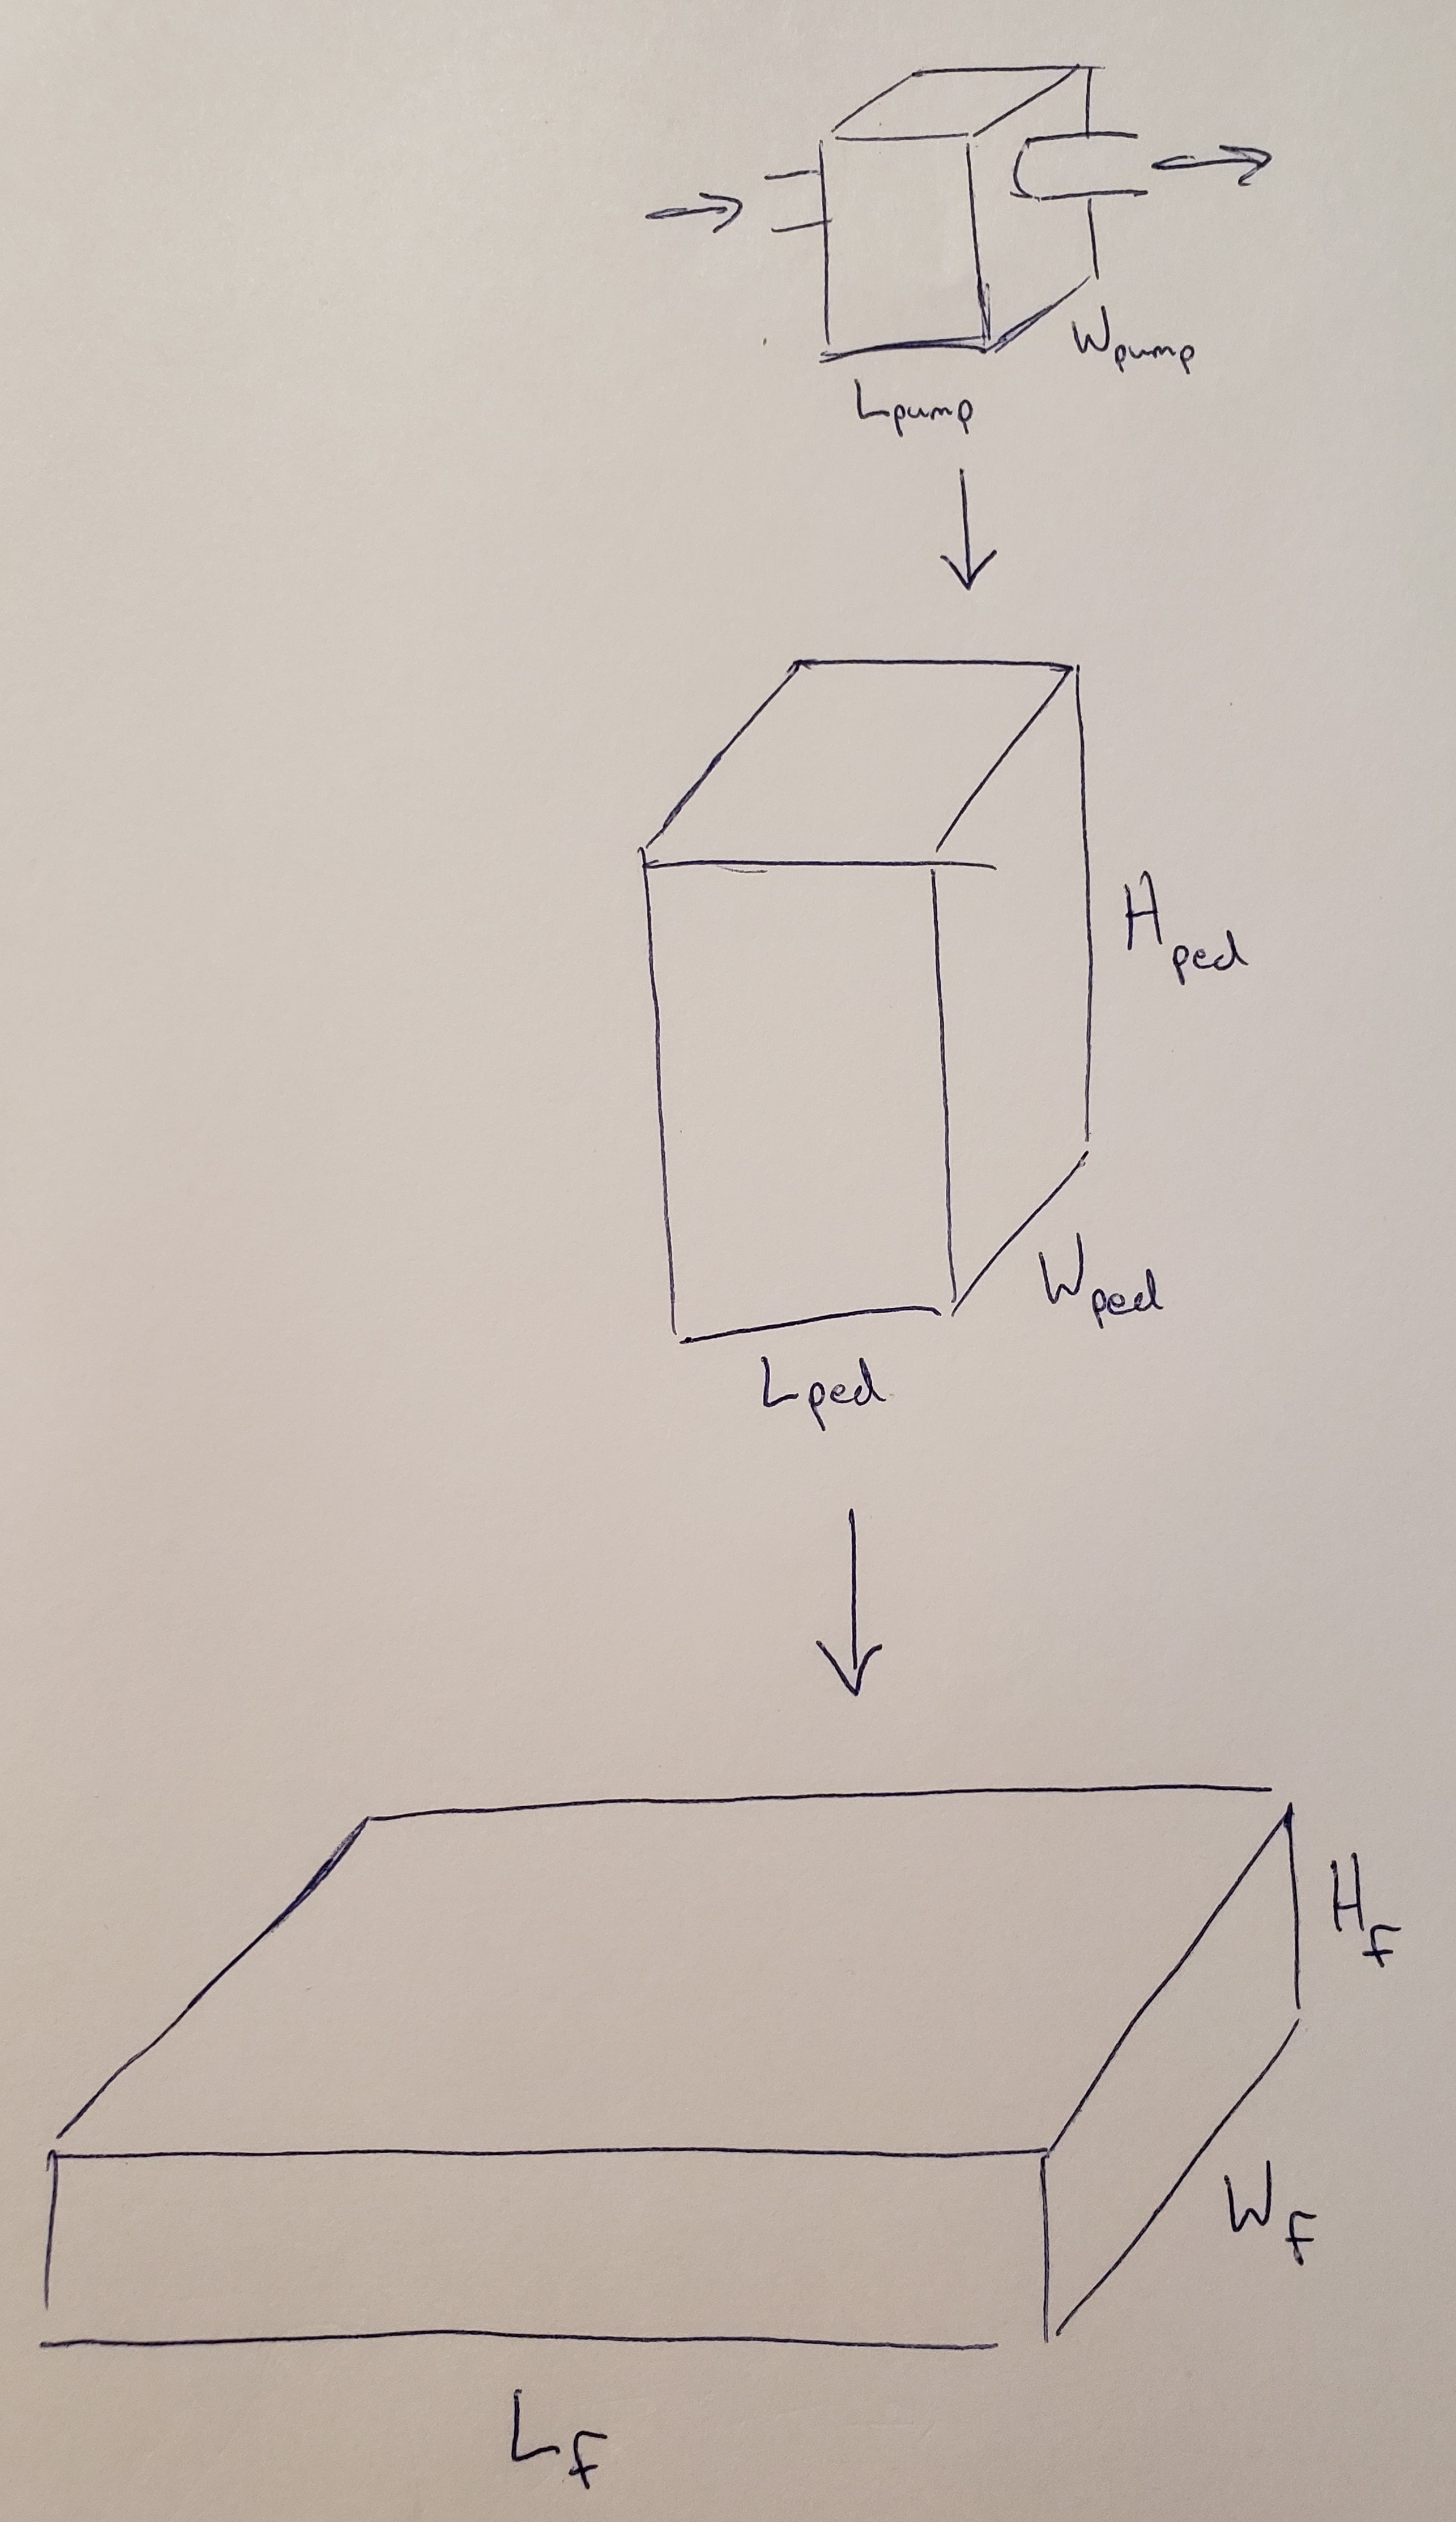 Wpump
Lpump
Hped
Wped
Lped
Hf
Wf
Lf